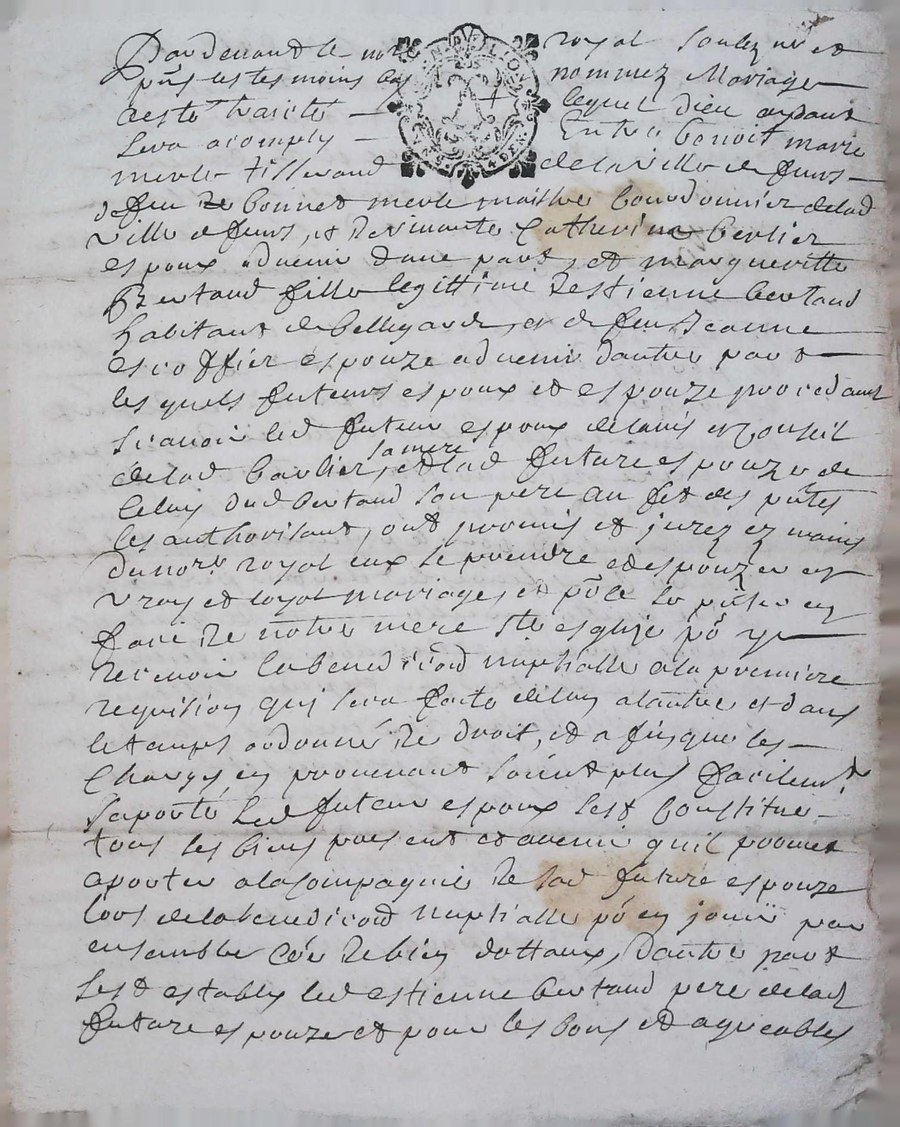 Pardevant le no.re royal soubz.né et
pñs les tesmoins bas nommez Mariage
a esté traicté — lequel Dieu aydant
sera acomply — Entre benoit marie
merle tisserand de la ville de feurs —
de feu bonnet merle maistre courdonnier de lad
ville de feurs, et vivante Catherine berlier
espoux advenir d'une part, et margueritte
Bertaud fille legittime d'estienne bertaud
habitant de bellegarde, et de feu Jeanne
escoffier espouze advenir d'autre part —
lesquels futeurs espoux et espouze procedant
scavoir led futeur espoux de lavis et conseil
de lad berlier sa mere, et lad future espouze de
celuy dud bertaud son pere au fet des pñtes
les authorisant, ont promis et jurez ez mains
du no.re royal eux se prendre et espouzer en
vray et loyal mariage, et põ ce se pñter en
face de notre mere ste esglize põ y —
recevoir la benediçõn nuptialle a la premiere
requisition qui sera faite de lun a lautre et dans
le temps ordonné de droit, et afin que les —
charges en provenant soient plus facilem.t
suporté led futeur espoux sest constitué —
tous ses biens present et avenir quil promet
aporter a la compagnie de sad future espouze
lors de la benediçõn nuptialle põ en jouir par
ensemble cõe de bien dottaux, d'autre part
sest estably led estienne bertaud pere de lad
future espouze et pour les bons et agreables